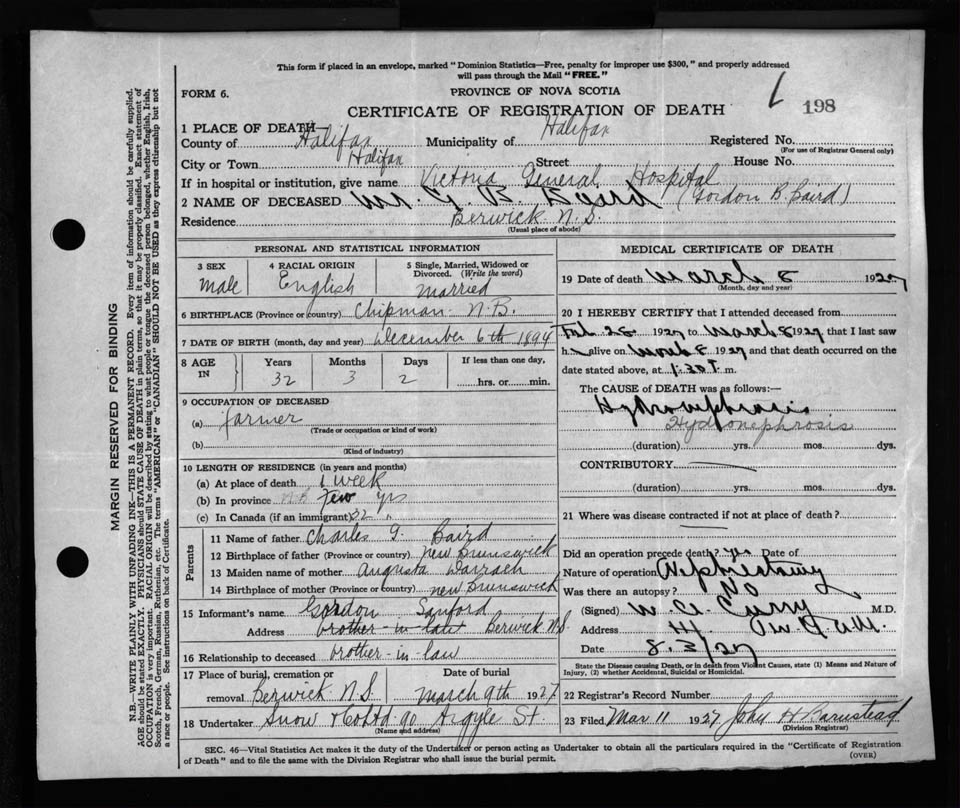 This form if placed in an envelope, marked "Dominion Statistics—Free, penalty for improper use $300," and properly addressed
will pass through the Mail "FREE."
FORM 6.
PROVINCE OF NOVA SCOTIA
CERTIFICATE OF REGISTRATION OF DEATH
198
1 PLACE OF DEATH—
County of Halifax Municipality of Halifax Registered No.
(For use of Registrar General only)
City or Town Halifax Street House No.
If in hospital or institution, give name Victoria General Hospital
2 NAME OF DECEASED Mr G. B. Baird (Gordon B. Baird)
Residence Berwick N.S.
(Usual place of abode)
PERSONAL AND STATISTICAL INFORMATION
3 SEX
male
4 RACIAL ORIGIN
English
5 Single, Married, Widowed or
Divorced. (Write the word)
married
6 BIRTHPLACE (Province or country) Chipman N.B.
7 DATE OF BIRTH (month, day and year) December 6th 1894
8 AGE
IN
Years Months Days If less than one day,
32 3 2 hrs. or min.
9 OCCUPATION OF DECEASED
(a) farmer
(Trade or occupation or kind of work)
(b)
(Kind of industry)
10 LENGTH OF RESIDENCE (in years and months)
(a) At place of death 1 week
(b) In province few yrs
(c) In Canada (if an immigrant) 32 "
Parents
11 Name of father Charles G. Baird
12 Birthplace of father (Province or country) New Brunswick
13 Maiden name of mother Augusta
14 Birthplace of mother (Province or country) New Brunswick
15 Informant's name Gordon Sanford
Address brother-in-law Berwick N.S.
16 Relationship to deceased brother-in-law
17 Place of burial, cremation or
removal Berwick N.S.
Date of burial
March 9th 1927
18 Undertaker Snow & Co Ltd 90 Argyle St.
(Name and address)
MEDICAL CERTIFICATE OF DEATH
19 Date of death March 8 1927
(Month, day and year)
20 I HEREBY CERTIFY that I attended deceased from
Feb 28 1927 to March 8 1927 that I last saw
h alive on March 8 1927 and that death occurred on the
date stated above, at 1.30 m.
The CAUSE OF DEATH was as follows:—
Hydronephrosis
Hydronephrosis
(duration) yrs. mos. dys.
CONTRIBUTORY
(duration) yrs. mos. dys.
21 Where was disease contracted if not at place of death?
Did an operation precede death? Yes Date of
Nature of operation Nephrectomy
Was there an autopsy? No
(Signed) W. A. Curry M.D.
Address
Date 8/3/27
State the Disease causing Death, or in death from Violent Causes, state (1) Means and Nature of
Injury, (2) whether Accidental, Suicidal or Homicidal.
22 Registrar's Record Number
23 Filed Mar 11 1927 John H Barnstead
(Division Registrar)
SEC. 46—Vital Statistics Act makes it the duty of the Undertaker or person acting as Undertaker to obtain all the particulars required in the "Certificate of Registration
of Death" and to file the same with the Division Registrar who shall issue the burial permit.
(OVER)
MARGIN RESERVED FOR BINDING
N.B.—WRITE PLAINLY WITH UNFADING INK—THIS IS A PERMANENT RECORD. Every item of information should be carefully supplied.
AGE should be stated EXACTLY. PHYSICIANS should STATE CAUSE OF DEATH in plain terms, so that it may be properly classified. Exact statement of
OCCUPATION is very important. RACIAL ORIGIN will be described by stating to what people or tongue the deceased person belonged, whether English, Irish,
Scotch, French, German, Russian, Ruthenian, etc. The terms "AMERICAN" or "CANADIAN" SHOULD NOT BE USED as they express citizenship but not
a race or people. See instructions on back of Certificate.